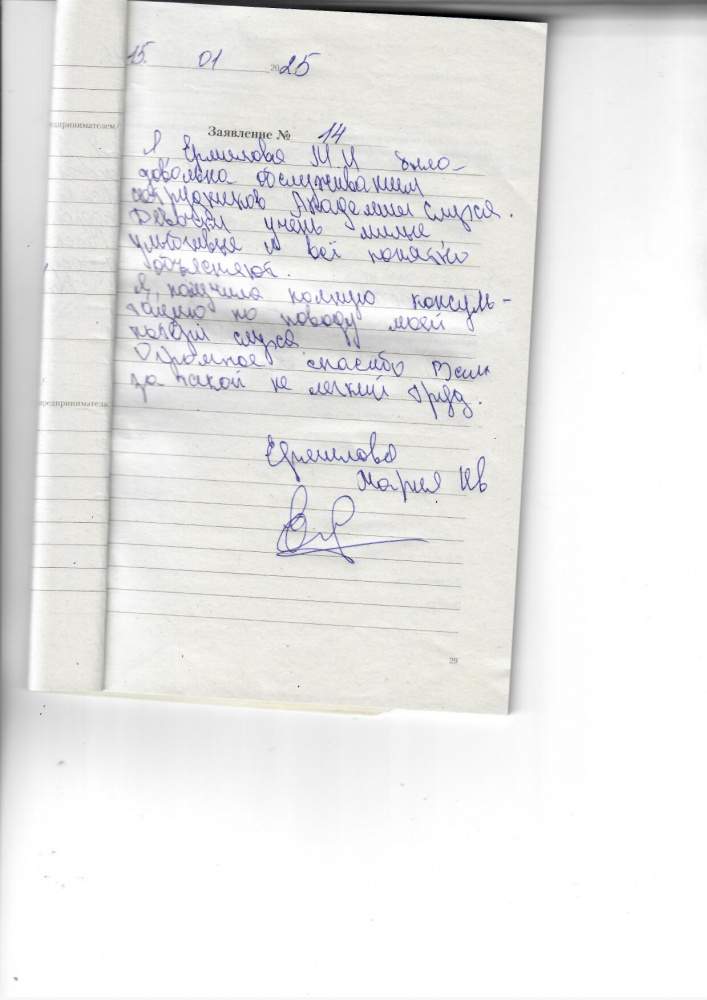 15. 01 2025
едпринимателем
Заявление № 14
Я, Ермилова М И была
довольна обслуживанием
сотрудников Академии слуха.
Девочки учень милые
улыбчивые и всё понятно
объясняют.
Я получила полную консуль-
тацию по поводу моей
потери слуха
Огромное спасибо Вам
за такой не легкий труд.
предпринимателя
Ермилова
Мария Ив
29